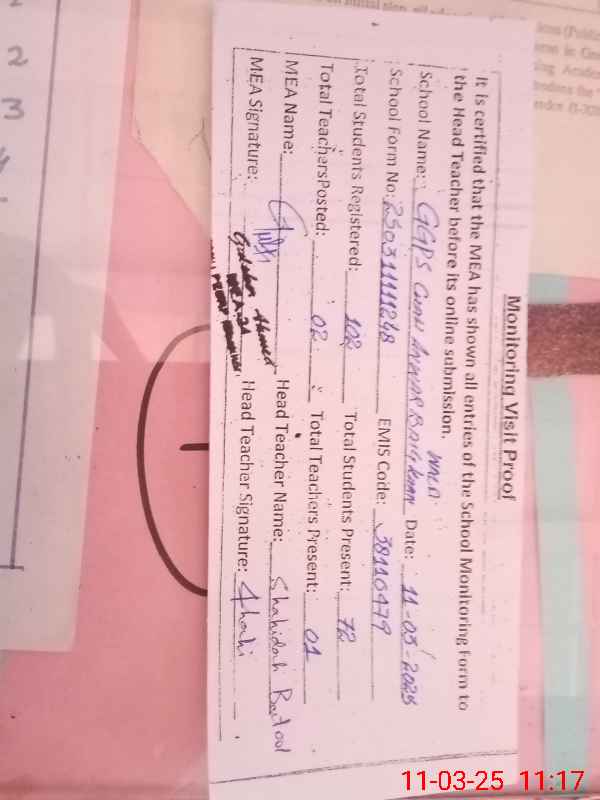 Monitoring Visit Proof
It is certified that the MEA has shown all entries of the School Monitoring Form to
the Head Teacher before its online submission.
School Name: GGPS Date: 11-03-2025
School Form No: 25031111248 EMIS Code: 38110479
Total Students Registered: 102 Total Students Present: 72
Total TeachersPosted: 02 Total Teachers Present: 01
MEA Name: Head Teacher Name: Shahidah Batool
MEA Signature: Head Teacher Signature:
Ahmed
2
3
11-03-25 11:17